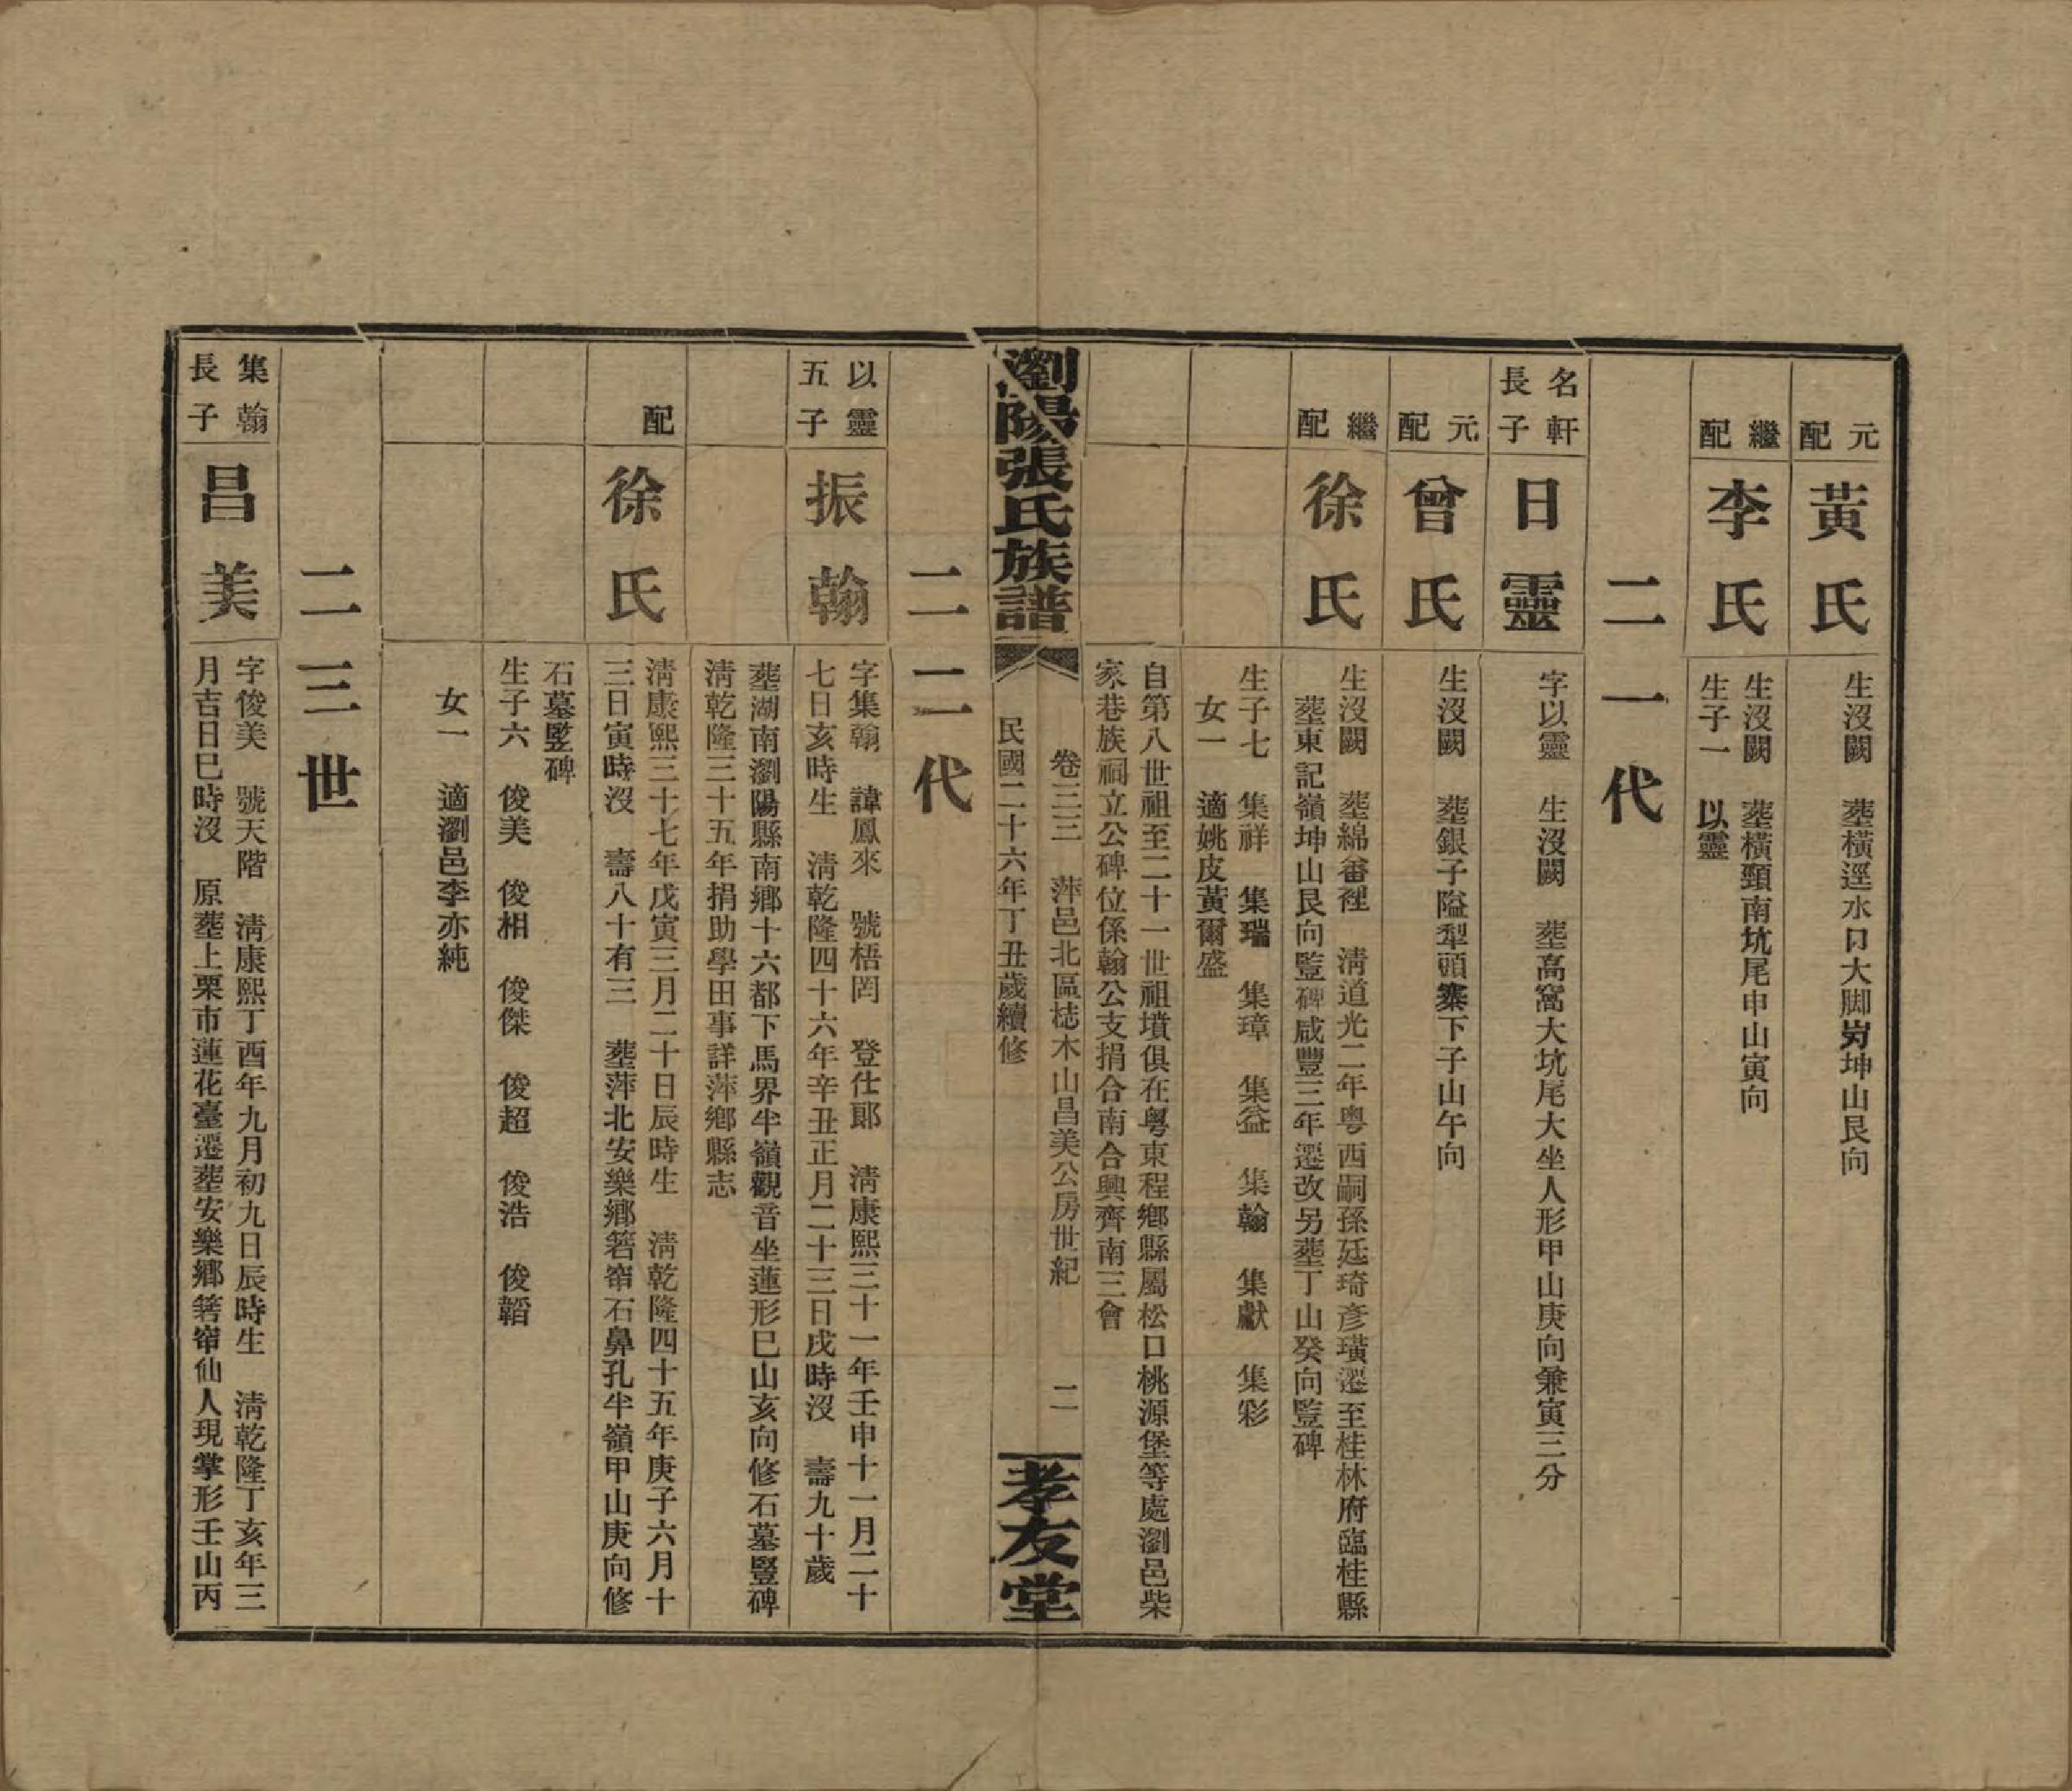 元配
黃氏
生沒闕　葬橫逕水口大脚㘭坤山艮向
繼配
李氏
生沒闕　葬橫頸南坑尾申山寅向
生子一　以靈
二一代
名軒長子
日靈
字以靈　生沒闕　葬高窩大坑尾大坐人形甲山庚向兼寅三分
元配
曾氏
生沒闕　葬銀子隘犁頭寨下子山午向
繼配
徐氏
生沒闕　葬綿畲裡　淸道光二年粤西嗣孫廷琦彥璜遷至桂林府臨桂縣
葬東記嶺坤山艮向豎碑咸豐三年遷改另葬丁山癸向豎碑
生子七　集祥　集瑞　集璋　集益　集翰　集獻　集彩
女一　適姚皮黃爾盛
自第八世祖至二十一世祖墳俱在粤東程鄉縣屬松口桃源堡等處瀏邑柴
家巷族祠立公碑位係翰公支捐合南合興齊南三會
瀏陽張氏族譜
卷三三　萍邑北區梽木山昌美公房世紀　二
民國二十六年丁丑歲續修
孝友堂
二二代
以靈五子
振翰
字集翰　諱鳳來　號梧罔　登仕郞　淸康熙三十一年壬申十一月二十
七日亥時生　淸乾隆四十六年辛丑正月二十三日戌時沒　壽九十歲
葬湖南瀏陽縣南鄉十六都下馬界半嶺觀音坐蓮形巳山亥向修石墓豎碑
淸乾隆三十五年捐助學田事詳萍鄉縣志
配
徐氏
淸康熙三十七年戊寅三月二十日辰時生　淸乾隆四十五年庚子六月十
三日寅時沒　壽八十有三　葬萍北安樂鄉箬窄石鼻孔半嶺甲山庚向修
石墓豎碑
生子六　俊美　俊相　俊傑　俊超　俊浩　俊韜
女一　適瀏邑李亦純
二三世
集翰長子
昌美
字俊美　號天階　淸康熙丁酉年九月初九日辰時生　淸乾隆丁亥年三
月吉日巳時沒　原葬上栗市蓮花臺遷葬安樂鄉箬窄仙人現掌形壬山丙